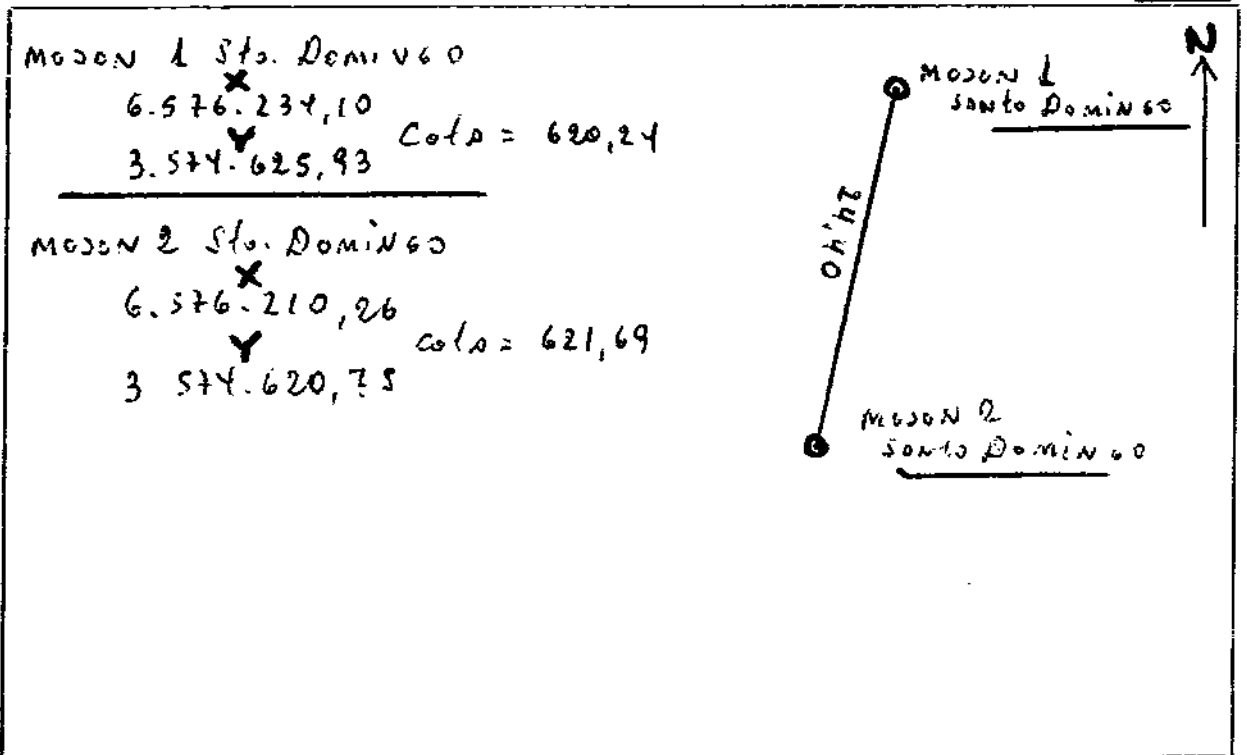 MOJON 1 Sto. DOMINGO
X
6.576.234,10
Y
3.574.625,93
Cota = 620,24
MOJON 2 Sto. DOMINGO
X
6.576.210,26
Y
3 574.620,75
cota = 621,69
N
MOJON 1
SANTO DOMINGO
24,40
MOJON 2
SANTO DOMINGO